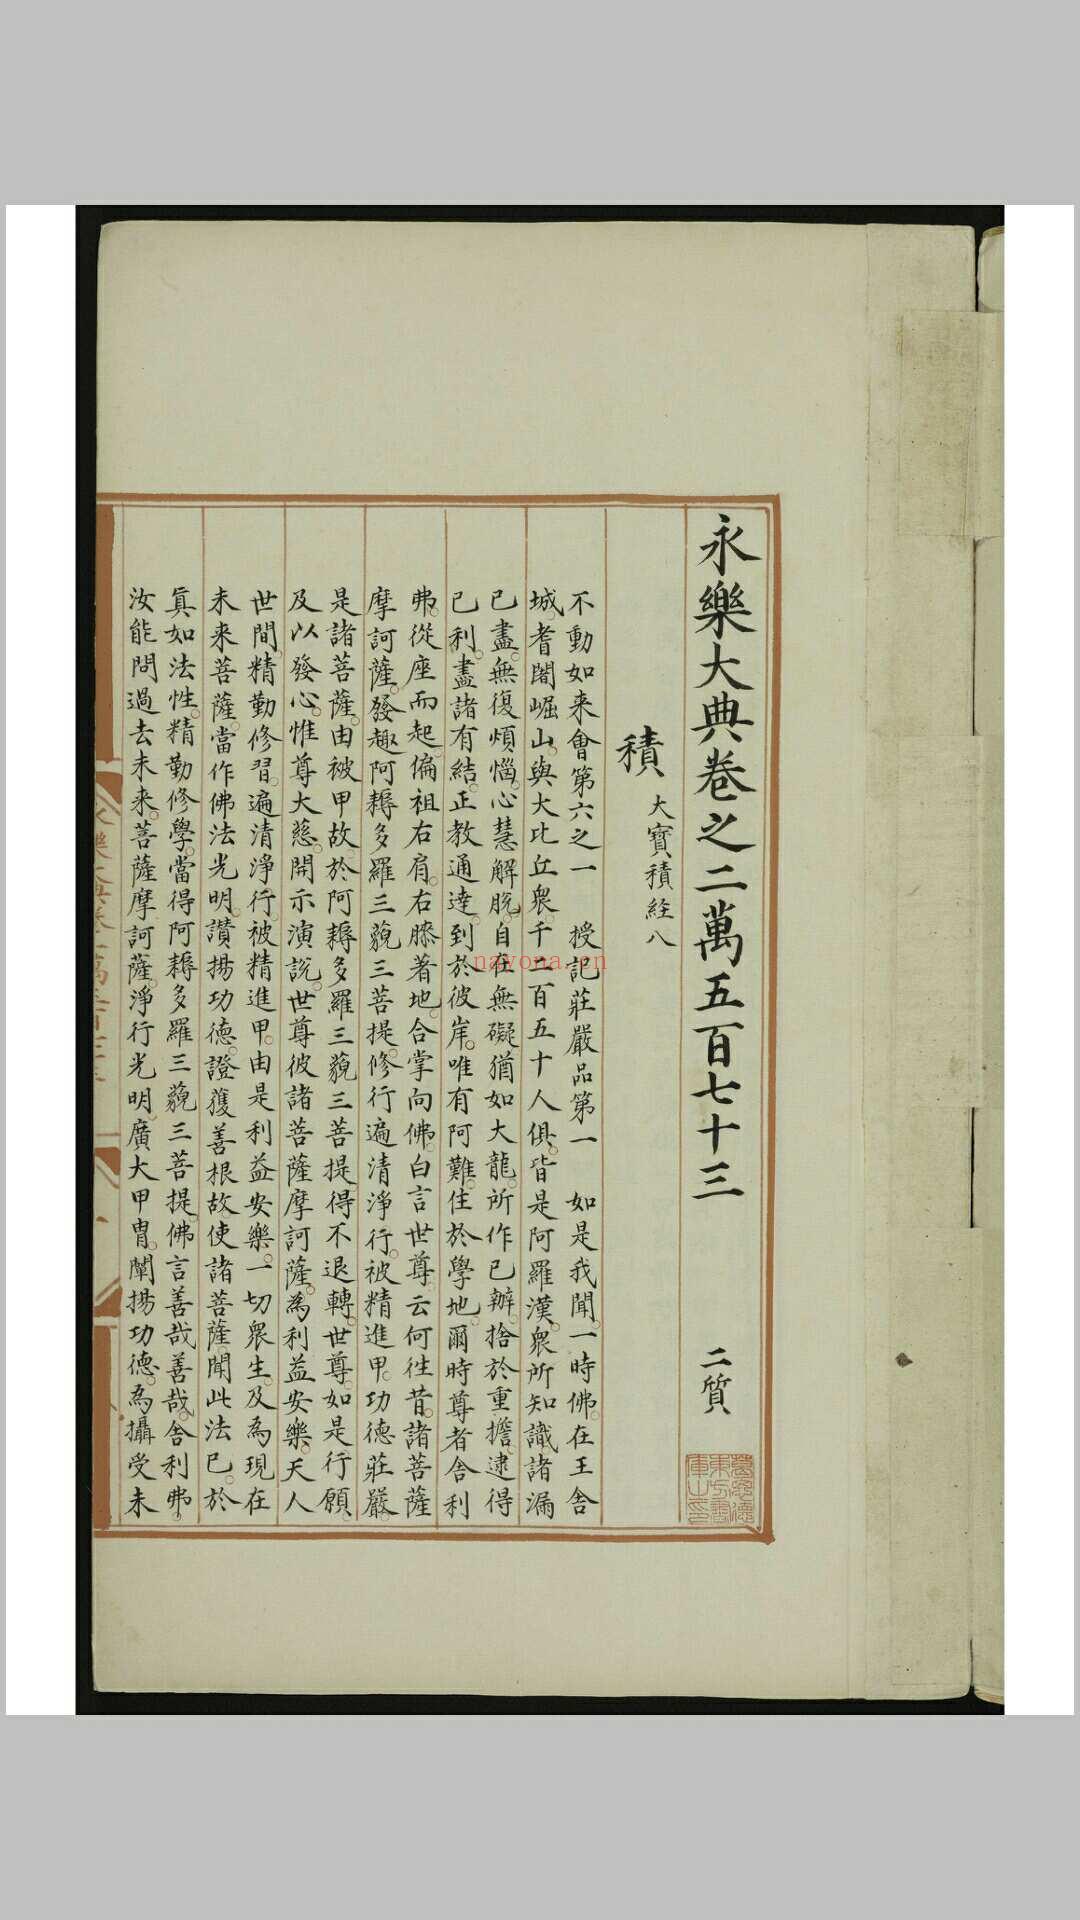 永樂大典卷之二萬五百七十三
二質
積
大寳積經八
不動如来會第六之一 授記莊嚴品第一 如是我聞一時佛在王舎
城耆闍崛山與大比丘衆千二百五十人俱皆是阿羅漢衆所知識諸漏
已盡無復煩惱心慧解脱自在無礙猶如大龍所作已辦捨於重擔逮得
已利盡諸有結正教通逹到於彼岸唯有阿難住於學地爾時尊者舎利
弗從座而起偏袒右肩右膝著地合掌向佛白言世尊云何徃昔諸菩薩
摩訶薩發趣阿耨多羅三藐三菩提修行遍清淨行被精進甲功德莊嚴
是諸菩薩由被甲故於阿耨多羅三藐三菩提得不退轉世尊如是行願
及以發心惟尊大慈開示演説世尊彼諸菩薩摩訶薩為利益安樂天人
世間精勤修習遍清淨行被精進甲由是利益安樂一切衆生及為現在
未来菩薩當作佛法光明讃揚功德證獲善根故使諸菩薩聞此法已於
眞如法性精勤修學當得阿耨多羅三藐三菩提佛言善哉善哉舎利弗
汝能問過去未来菩薩摩訶薩淨行光明廣大甲冑闡揚功德為攝受未
nayona.cn